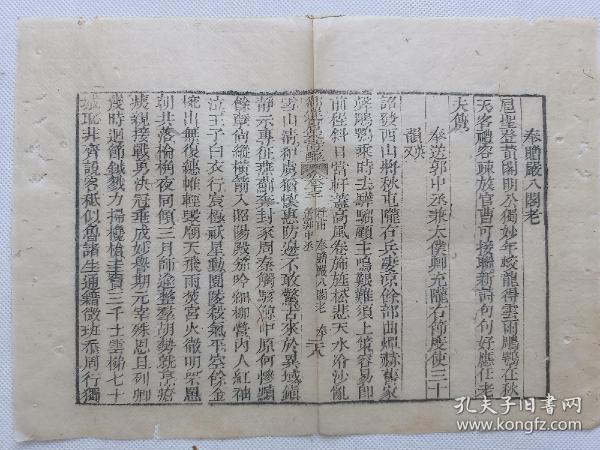 奉贈嚴八閣老
扈聖登黃閣明公獨妙年蛟龍得雲雨鵰鶚在秋
天客禮容疎放官曹可接聯新詩句句好應任老
夫傳
奉送郭中丞兼太僕卿充隴右節度使三十
韻英乂
詔發西山將秋屯隴右兵淒涼餘部曲燀赫舊家
聲鵰鶚乘時去驊騮顧主鳴艱難須上策容易即
前程斜日當軒蓋高風卷旆旌松悲天水冷沙亂
奉贈嚴八閣老 奉
送郭中丞
雪山清和虜猶懷惠防邊不敢驚古來於異域鎮
靜示專征燕薊奔封豕周秦觸駭鯨中原何慘黷
餘孽尚縱橫箭入昭陽殿笳吟細柳營內人紅袖
泣王子白衣行宸極祅星動園陵殺氣平空餘金
椀出無復穗帷輕毀廟天飛雨焚宮火徹明罘罳
朝共落棆桷夜同傾三月師逾整羣胡勢就烹瘡
痍親接戰勇決冠垂成妙譽期元宰殊恩且列卿
幾時迴節鉞戮力掃欃槍圭竇三千士雲梯七十
城恥非齊說客秪似魯諸生通籍微班忝周行獨
孔夫子旧书网
www.kongfz.com